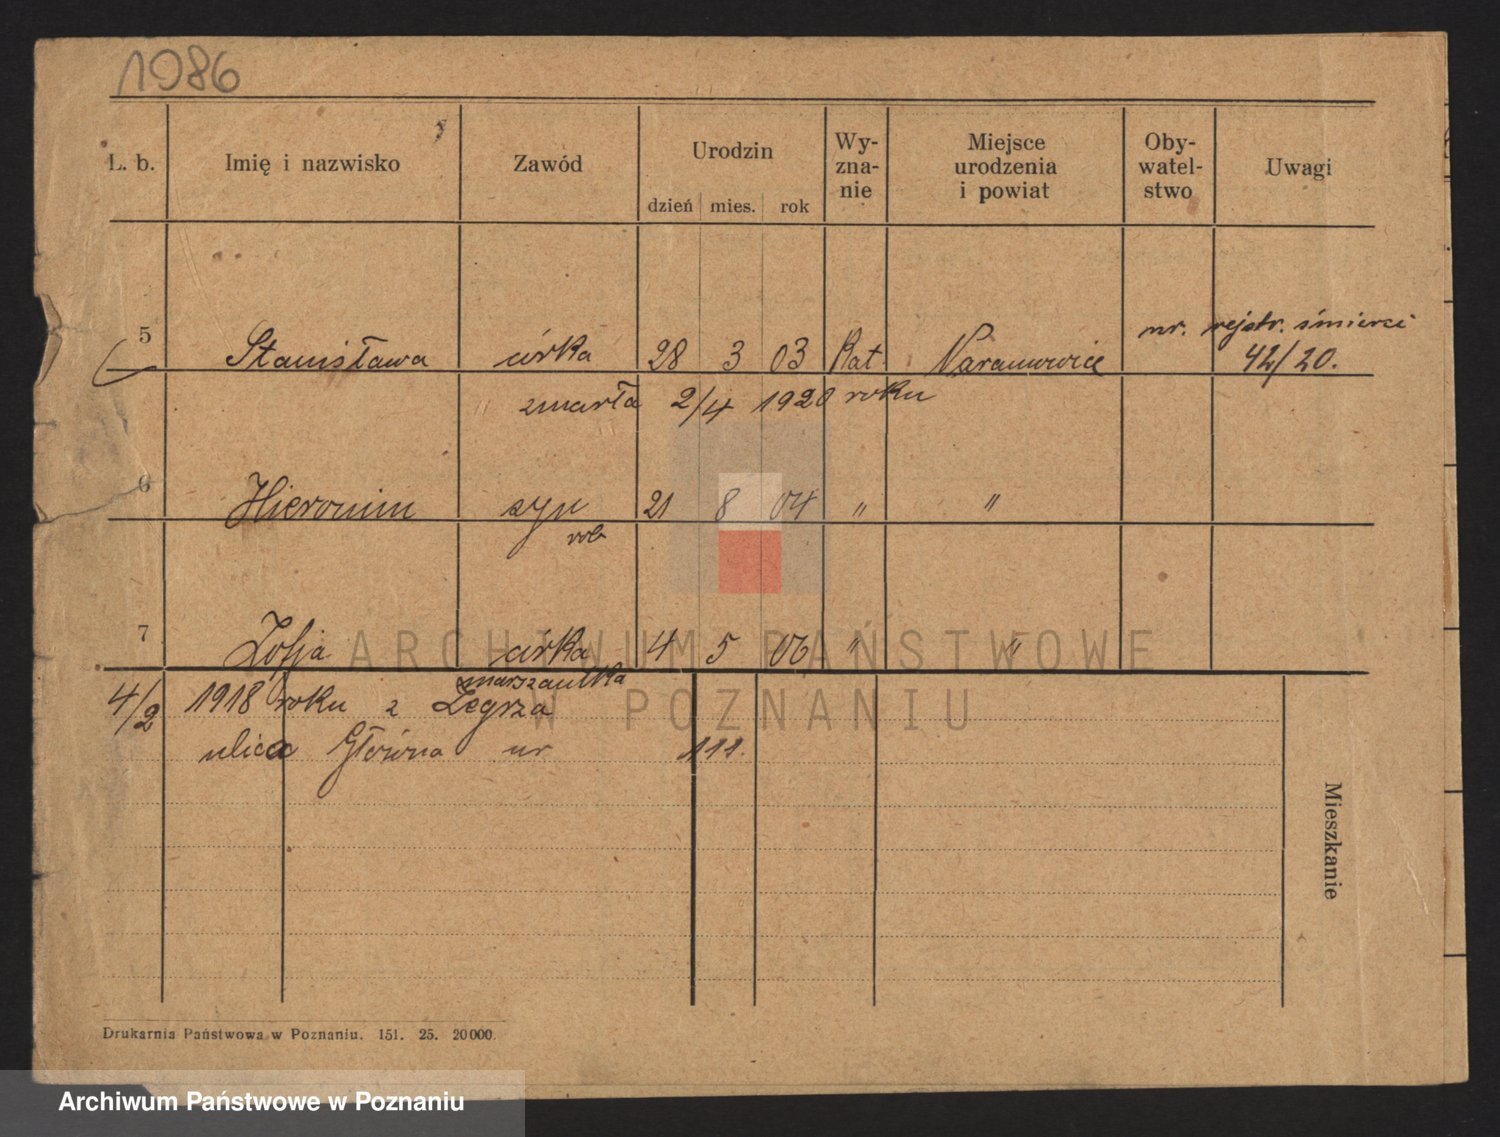 1986
L. b. Imię i nazwisko Zawód Urodzin dzień mies. rok Wy-zna-nie Miejsce urodzenia i powiat Oby-watel-stwo Uwagi
nr. rejstr. śmierci
5 Stanisława córka 28 3 03 Kat. Naramowice 42/20.
zmarła 2/4 1920 roku
6 Hieronim syn 21 8 04 " "
rob
7 Zofja córka 4 5 06 " "
ARCHIWUM PAŃSTWOWE
W POZNANIU
4/2 1918 roku z Żegrza
ulica Główna nr 111.
Mieszkanie
Drukarnia Państwowa w Poznaniu. 151. 25. 20000.
Archiwum Państwowe w Poznaniu